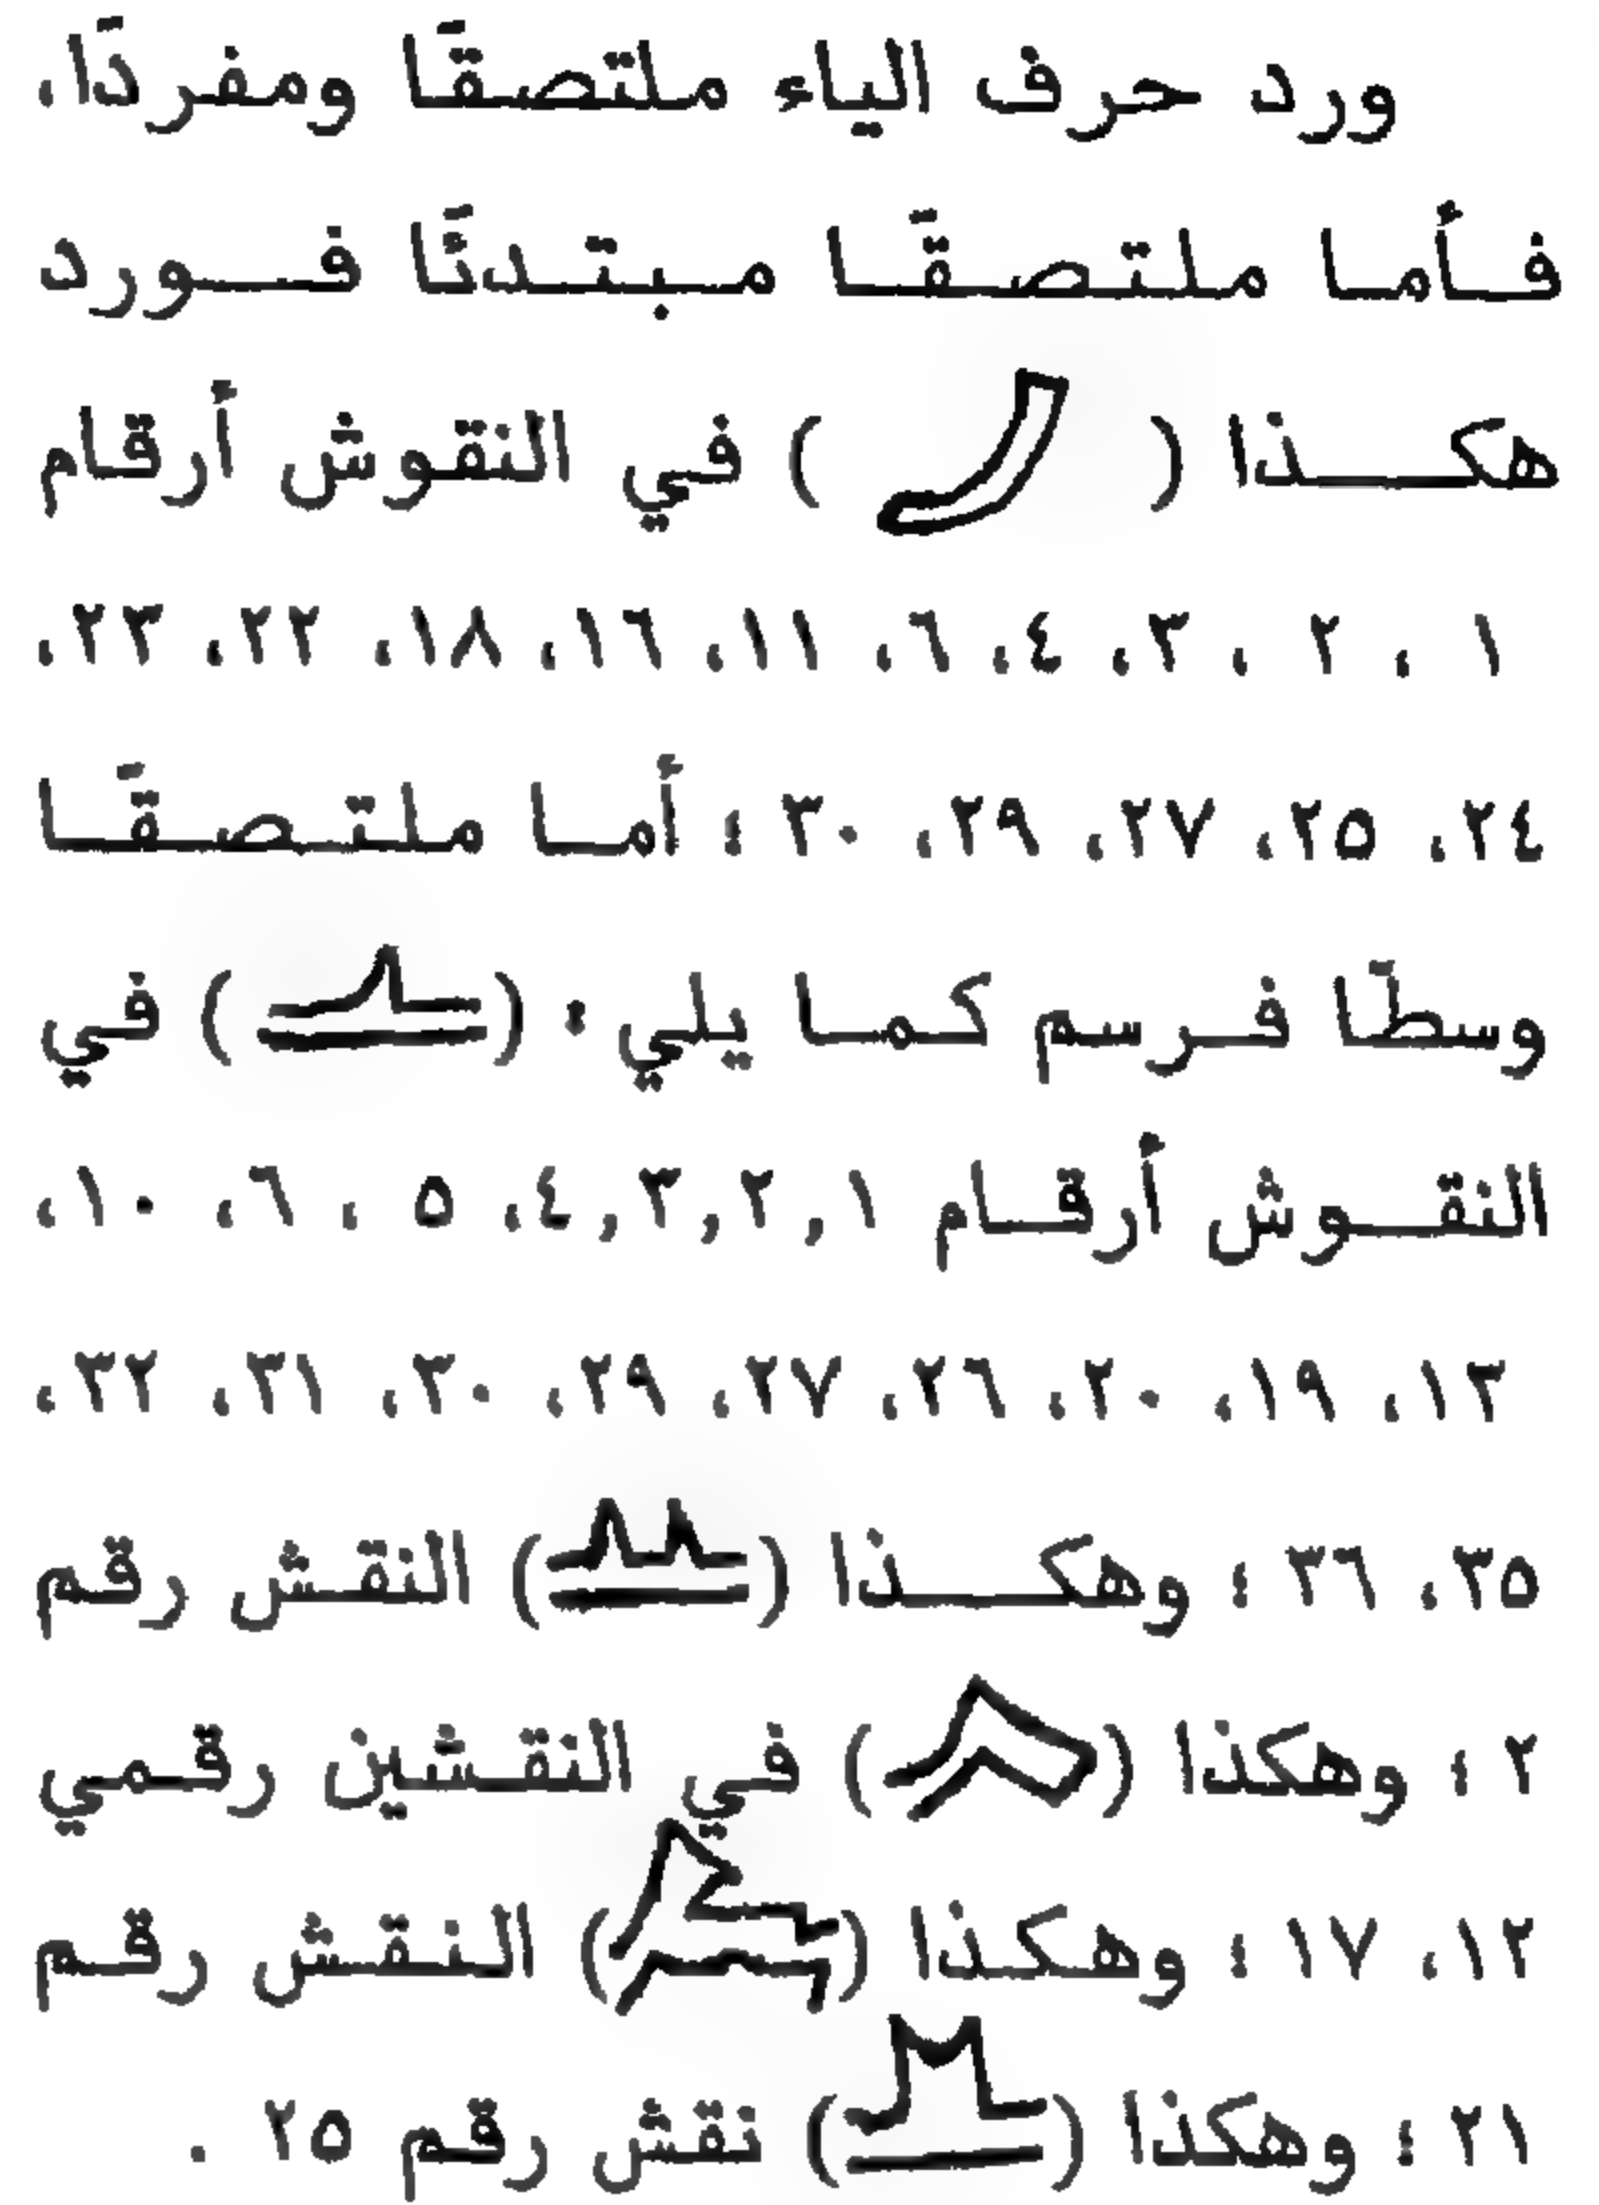 ورد حرف الياء ملتصقًا ومفردًا،
فأما ملتصقًا مبتدئًا فورد
هكذا ( ) في النقوش أرقام
١ ، ٢ ، ٣، ٤، ٦، ١١، ١٦، ١٨، ٢٢، ٢٣،
٢٤، ٢٥، ٢٧، ٢٩، ٣٠ ؛ أما ملتصقًا
وسطًا فرسم كما يلي : ( ) في
النقوش أرقام ١, ٢, ٣, ٤، ٥ ، ٦، ١٠،
١٣، ١٩، ٢٠، ٢٦، ٢٧، ٢٩، ٣٠، ٣١، ٣٢،
٣٥، ٣٦ ؛ وهكذا ( ) النقش رقم
٢ ؛ وهكذا ( ) في النقشين رقمي
١٢، ١٧ ؛ وهكذا ( ) النقش رقم
٢١ ؛ وهكذا ( ) نقش رقم ٢٥ .